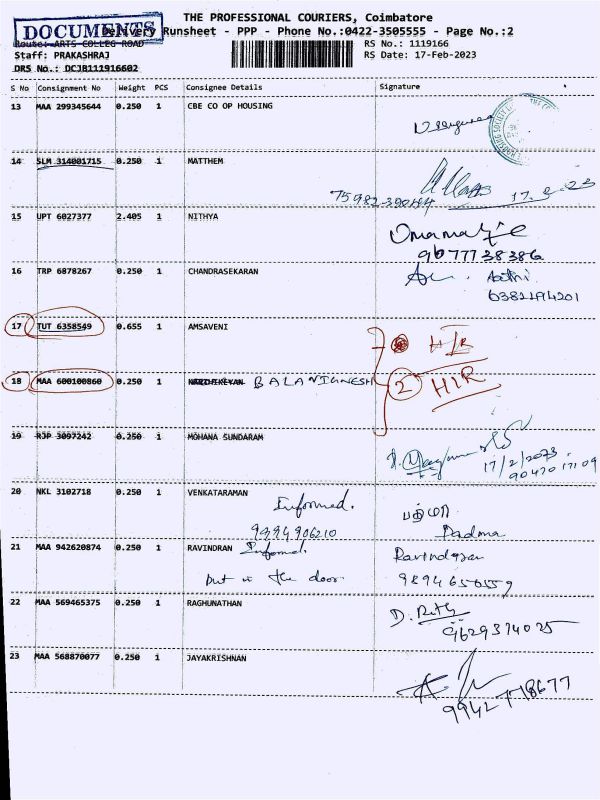 THE PROFESSIONAL COURIERS, Coimbatore
DOCUMENTS Delivery Runsheet - PPP - Phone No.:0422-3505555 - Page No.:2
Route: ARTS COLLEG ROAD RS No.: 1119166
Staff: PRAKASHRAJ RS Date: 17-Feb-2023
DRS No.: DCJB111916602
S No Consignment No Weight PCS Consignee Details Signature
13 MAA 299345644 0.250 1 CBE CO OP HOUSING
14 SLM 314001715 0.250 1 MATTHEM
17.2.23
15 UPT 6027377 2.405 1 NITHYA
9677738386
16 TRP 6878267 0.250 1 CHANDRASEKARAN
17 TUT 6358549 0.655 1 AMSAVENI H/R
18 MAA 600100860 0.250 1 BALAVIGNESH 2 H/R
19 RJP 3097242 0.250 1 MOHANA SUNDARAM
17/2/2023
20 NKL 3102718 0.250 1 VENKATARAMAN Informed. பத்மா
9994906210 Padma
21 MAA 942620874 0.250 1 RAVINDRAN Informed. Ravindran
put in the door 9894650559
22 MAA 569465375 0.250 1 RAGHUNATHAN
9629374025
23 MAA 568870077 0.250 1 JAYAKRISHNAN
9942778677